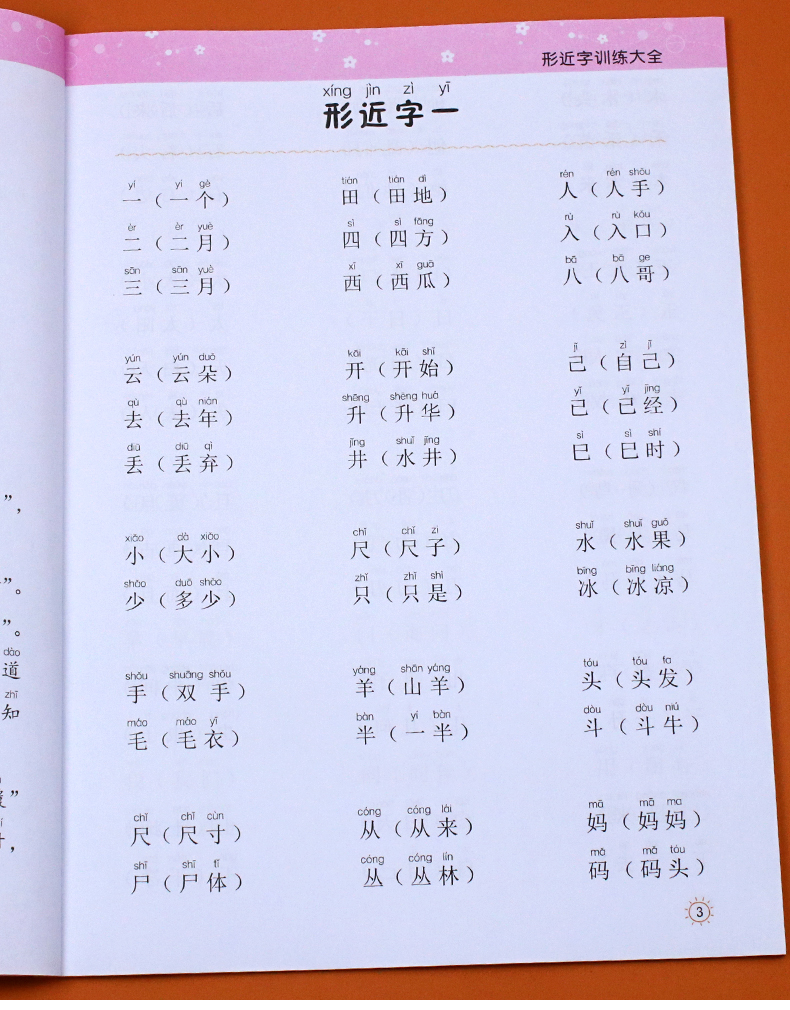 ”，
”。
”。
dào
道
zhī
知
”
，
形近字训练大全
xíng jìn zì yī
形近字一
yī yí gè
一（一个）
èr èr yuè
二（二月）
sān sān yuè
三（三月）
tián tián dì
田（田地）
sì sì fāng
四（四方）
xī xī guā
西（西瓜）
rén rén shǒu
人（人手）
rù rù kǒu
入（入口）
bā bā ge
八（八哥）
yún yún duǒ
云（云朵）
qù qù nián
去（去年）
diū diū qì
丢（丢弃）
kāi kāi shǐ
开（开始）
shēng shēng huá
升（升华）
jǐng shuǐ jǐng
井（水井）
jǐ zì jǐ
己（自己）
yǐ yǐ jīng
已（已经）
sì sì shí
巳（巳时）
xiǎo dà xiǎo
小（大小）
shǎo duō shǎo
少（多少）
chǐ chǐ zi
尺（尺子）
zhǐ zhǐ shì
只（只是）
shuǐ shuǐ guǒ
水（水果）
bīng bīng liáng
冰（冰凉）
shǒu shuāng shǒu
手（双手）
máo máo yī
毛（毛衣）
yáng shān yáng
羊（山羊）
bàn yí bàn
半（一半）
tóu tóu fa
头（头发）
dòu dòu niú
斗（斗牛）
chǐ chǐ cùn
尺（尺寸）
shī shī tǐ
尸（尸体）
cóng cóng lái
从（从来）
cóng cóng lín
丛（丛林）
mā mā ma
妈（妈妈）
mǎ mǎ tóu
码（码头）
3